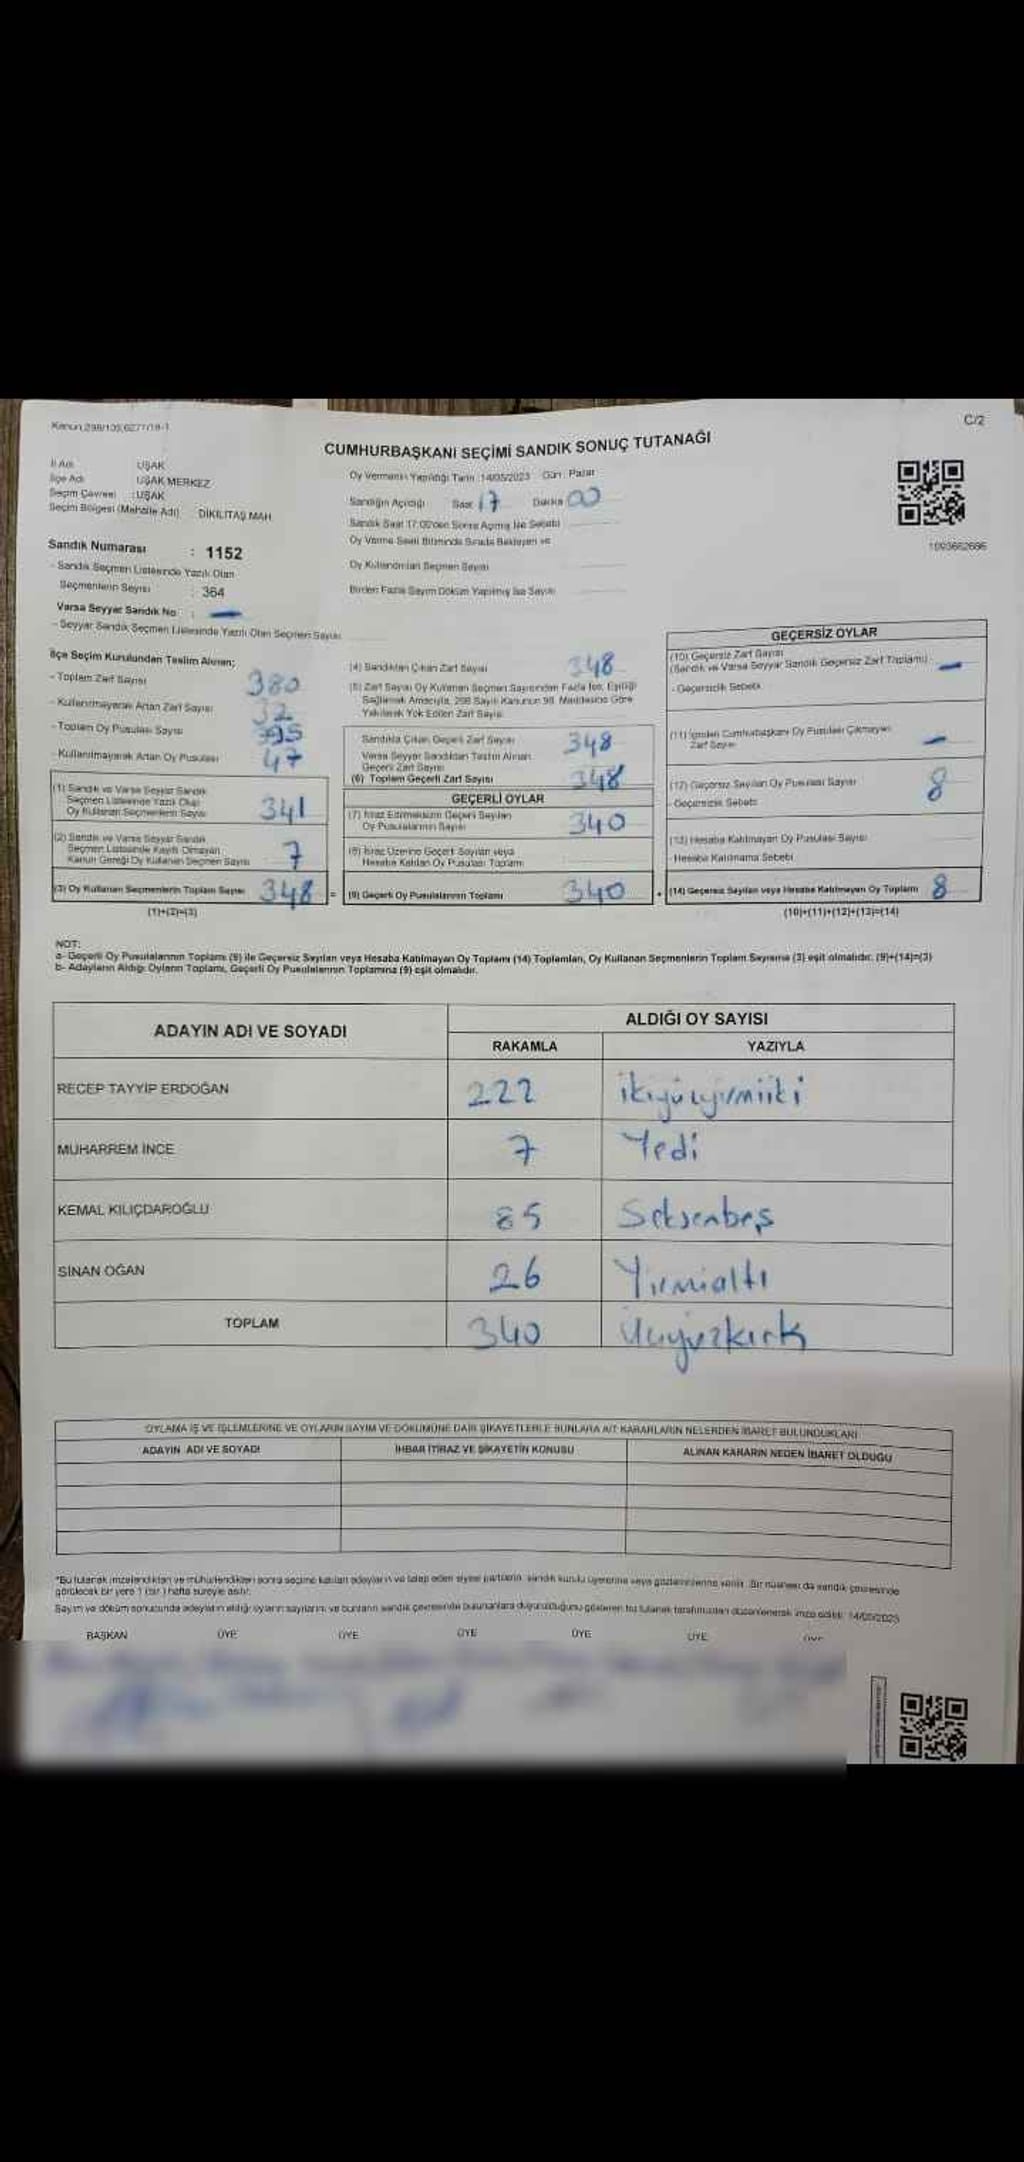 Kanun:298/105,6271/18-1
C/2
CUMHURBAŞKANI SEÇİMİ SANDIK SONUÇ TUTANAĞI
İl Adı : UŞAK
İlçe Adı : UŞAK MERKEZ
Seçim Çevresi : UŞAK
Seçim Bölgesi (Mahalle Adı) : DİKİLİTAŞ MAH
Oy Vermenin Yapıldığı Tarih :14/05/2023 Gün : Pazar
Sandığın Açıldığı Saat 17 Dakika 00
Sandık Saat 17:00'den Sonra Açılmış İse Sebebi
Oy Verme Saati Bitiminde Sırada Bekleyen ve
Oy Kullandırılan Seçmen Sayısı
Birden Fazla Sayım Döküm Yapılmış İse Sayısı
1093662686
Sandık Numarası : 1152
- Sandık Seçmen Listesinde Yazılı Olan
Seçmenlerin Sayısı : 364
Varsa Seyyar Sandık No : -
- Seyyar Sandık Seçmen Listesinde Yazılı Olan Seçmen Sayısı
İlçe Seçim Kurulundan Teslim Alınan;
- Toplam Zarf Sayısı 380
- Kullanılmayarak Artan Zarf Sayısı 32
- Toplam Oy Pusulası Sayısı 395
- Kullanılmayarak Artan Oy Pusulası 47
(1) Sandık ve Varsa Seyyar Sandık
Seçmen Listesinde Yazılı Olup
Oy Kullanan Seçmenlerin Sayısı 341
(2) Sandık ve Varsa Seyyar Sandık
Seçmen Listesinde Kayıtlı Olmayan
Kanun Gereği Oy Kullanan Seçmen Sayısı 7
(3) Oy Kullanan Seçmenlerin Toplam Sayısı 348 =
(1)+(2)=(3)
(4) Sandıktan Çıkan Zarf Sayısı 348
(5) Zarf Sayısı Oy Kullanan Seçmen Sayısından Fazla İse, Eşitliği
Sağlamak Amacıyla, 298 Sayılı Kanunun 98. Maddesine Göre
Yakılarak Yok Edilen Zarf Sayısı
Sandıkta Çıkan Geçerli Zarf Sayısı 348
Varsa Seyyar Sandıktan Teslim Alınan
Geçerli Zarf Sayısı
(6) Toplam Geçerli Zarf Sayısı 348
GEÇERLİ OYLAR
(7) İtiraz Edilmeksizin Geçerli Sayılan
Oy Pusulalarının Sayısı 340
(8) İtiraz Üzerine Geçerli Sayılan veya
Hesaba Katılan Oy Pusulası Toplamı
(9) Geçerli Oy Pusulalarının Toplamı 340 +
GEÇERSİZ OYLAR
(10) Geçersiz Zarf Sayısı
(Sandık ve Varsa Seyyar Sandık Geçersiz Zarf Toplamı) -
- Geçersizlik Sebebi
(11) İçinden Cumhurbaşkanı Oy Pusulası Çıkmayan
Zarf Sayısı -
(12) Geçersiz Sayılan Oy Pusulası Sayısı 8
- Geçersizlik Sebebi
(13) Hesaba Katılmayan Oy Pusulası Sayısı
- Hesaba Katılmama Sebebi
(14) Geçersiz Sayılan veya Hesaba Katılmayan Oy Toplamı 8
(10)+(11)+(12)+(13)=(14)
NOT:
a- Geçerli Oy Pusulalarının Toplamı (9) ile Geçersiz Sayılan veya Hesaba Katılmayan Oy Toplamı (14) Toplamları, Oy Kullanan Seçmenlerin Toplam Sayısına (3) eşit olmalıdır. (9)+(14)=(3)
b- Adayların Aldığı Oyların Toplamı, Geçerli Oy Pusulalarının Toplamına (9) eşit olmalıdır.
ADAYIN ADI VE SOYADI
ALDIĞI OY SAYISI
RAKAMLA YAZIYLA
RECEP TAYYİP ERDOĞAN 222 ikiyüzyirmiiki
MUHARREM İNCE 7 Yedi
KEMAL KILIÇDAROĞLU 85 Seksenbeş
SİNAN OĞAN 26 Yirmialtı
TOPLAM 340 Üçyüzkırk
OYLAMA İŞ VE İŞLEMLERİNE VE OYLARIN SAYIM VE DÖKÜMÜNE DAİR ŞİKAYETLERLE BUNLARA AİT KARARLARIN NELERDEN İBARET BULUNDUKLARI
ADAYIN ADI VE SOYADI İHBAR İTİRAZ VE ŞİKAYETİN KONUSU ALINAN KARARIN NEDEN İBARET OLDUĞU
*Bu tutanak imzalandıktan ve mühürlendikten sonra seçime katılan adayların ve talep eden siyasi partilerin, sandık kurulu üyelerine veya gözlemcilerine verilir. Bir nüshası da sandık çevresinde
görülecek bir yere 1 (bir ) hafta süreyle asılır.
Sayım ve döküm sonucunda adayların aldığı oyların sayılarını ve bunların sandık çevresinde bulunanlara duyurulduğunu gösteren bu tutanak tarafımızdan düzenlenerek imza edildi. 14/05/2023
BAŞKAN ÜYE ÜYE ÜYE ÜYE ÜYE ÜYE